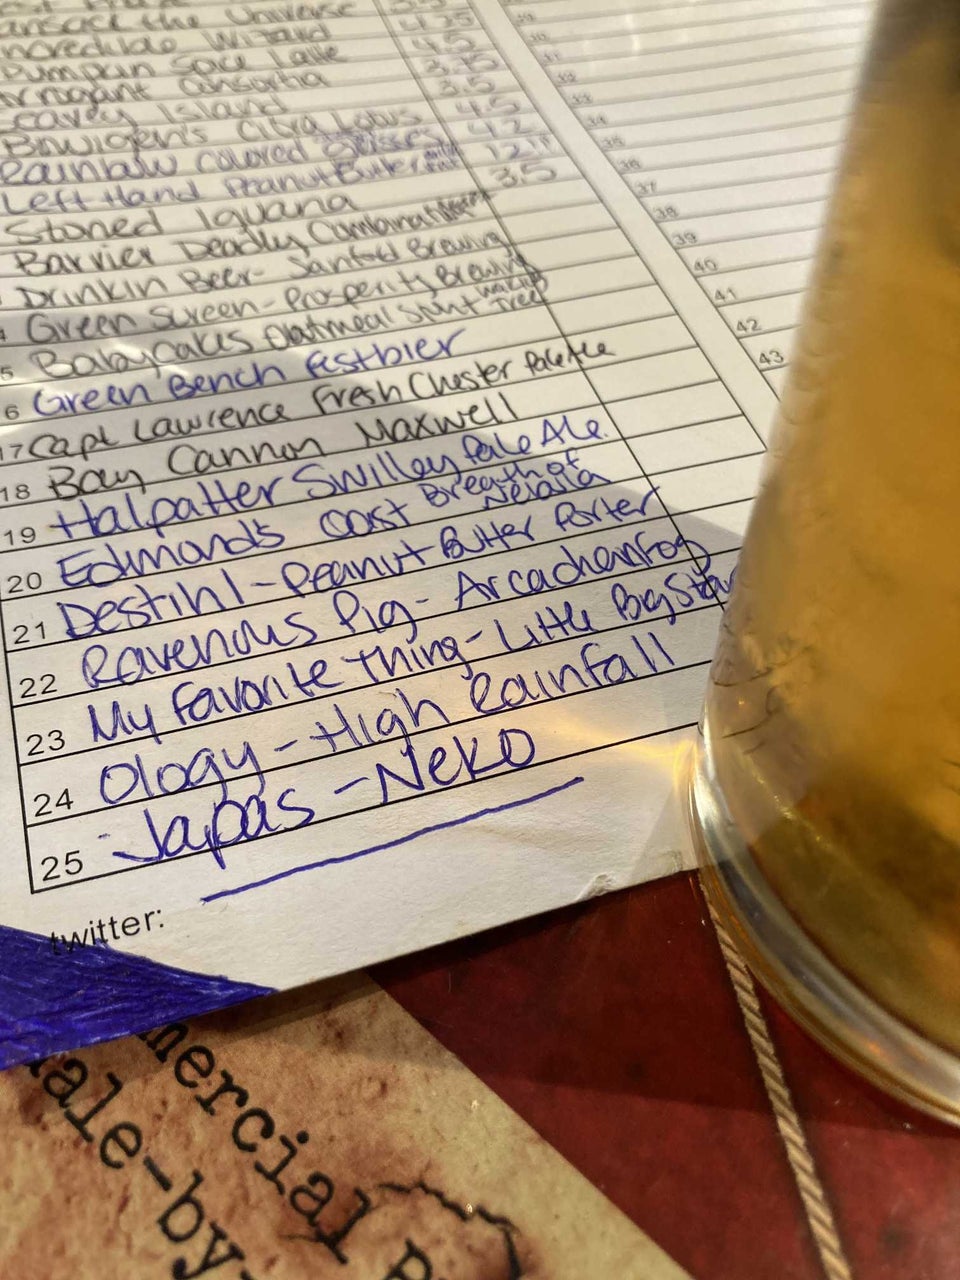 the Universe 4.25
Incredible Wizard 4.5
Pumpkin Spice Latte 3.75
Arrogant Consortia 3.5
Island 4.5
Citra Lotus 4.2
Rainbow colored
Left Hand Peanut Butter 3.5
Stoned Iguana
Barrier Deadly
Drinkin Beer - Sanford Brewing
Green Screen - Prosperity Brewing
5 Babycakes Oatmeal Stout Walking Tree
6 Green Bench Festbier
17 Capt Lawrence Fresh Chester Pale Ale
18 Bay Cannon Maxwell
19 Halpatter Swilley Pale Ale.
20 Edmond's Cost Breath of
21 Destihl - Peanut Butter Porter
22 Ravenous Pig - Arcachon Fog
23 My Favorite Thing - Little Big Star
24 Ology - High Rainfall
25 Japas - Neko
twitter:
33
34
35
36
37
38
39
40
41
42
43
mercial
ale-by-